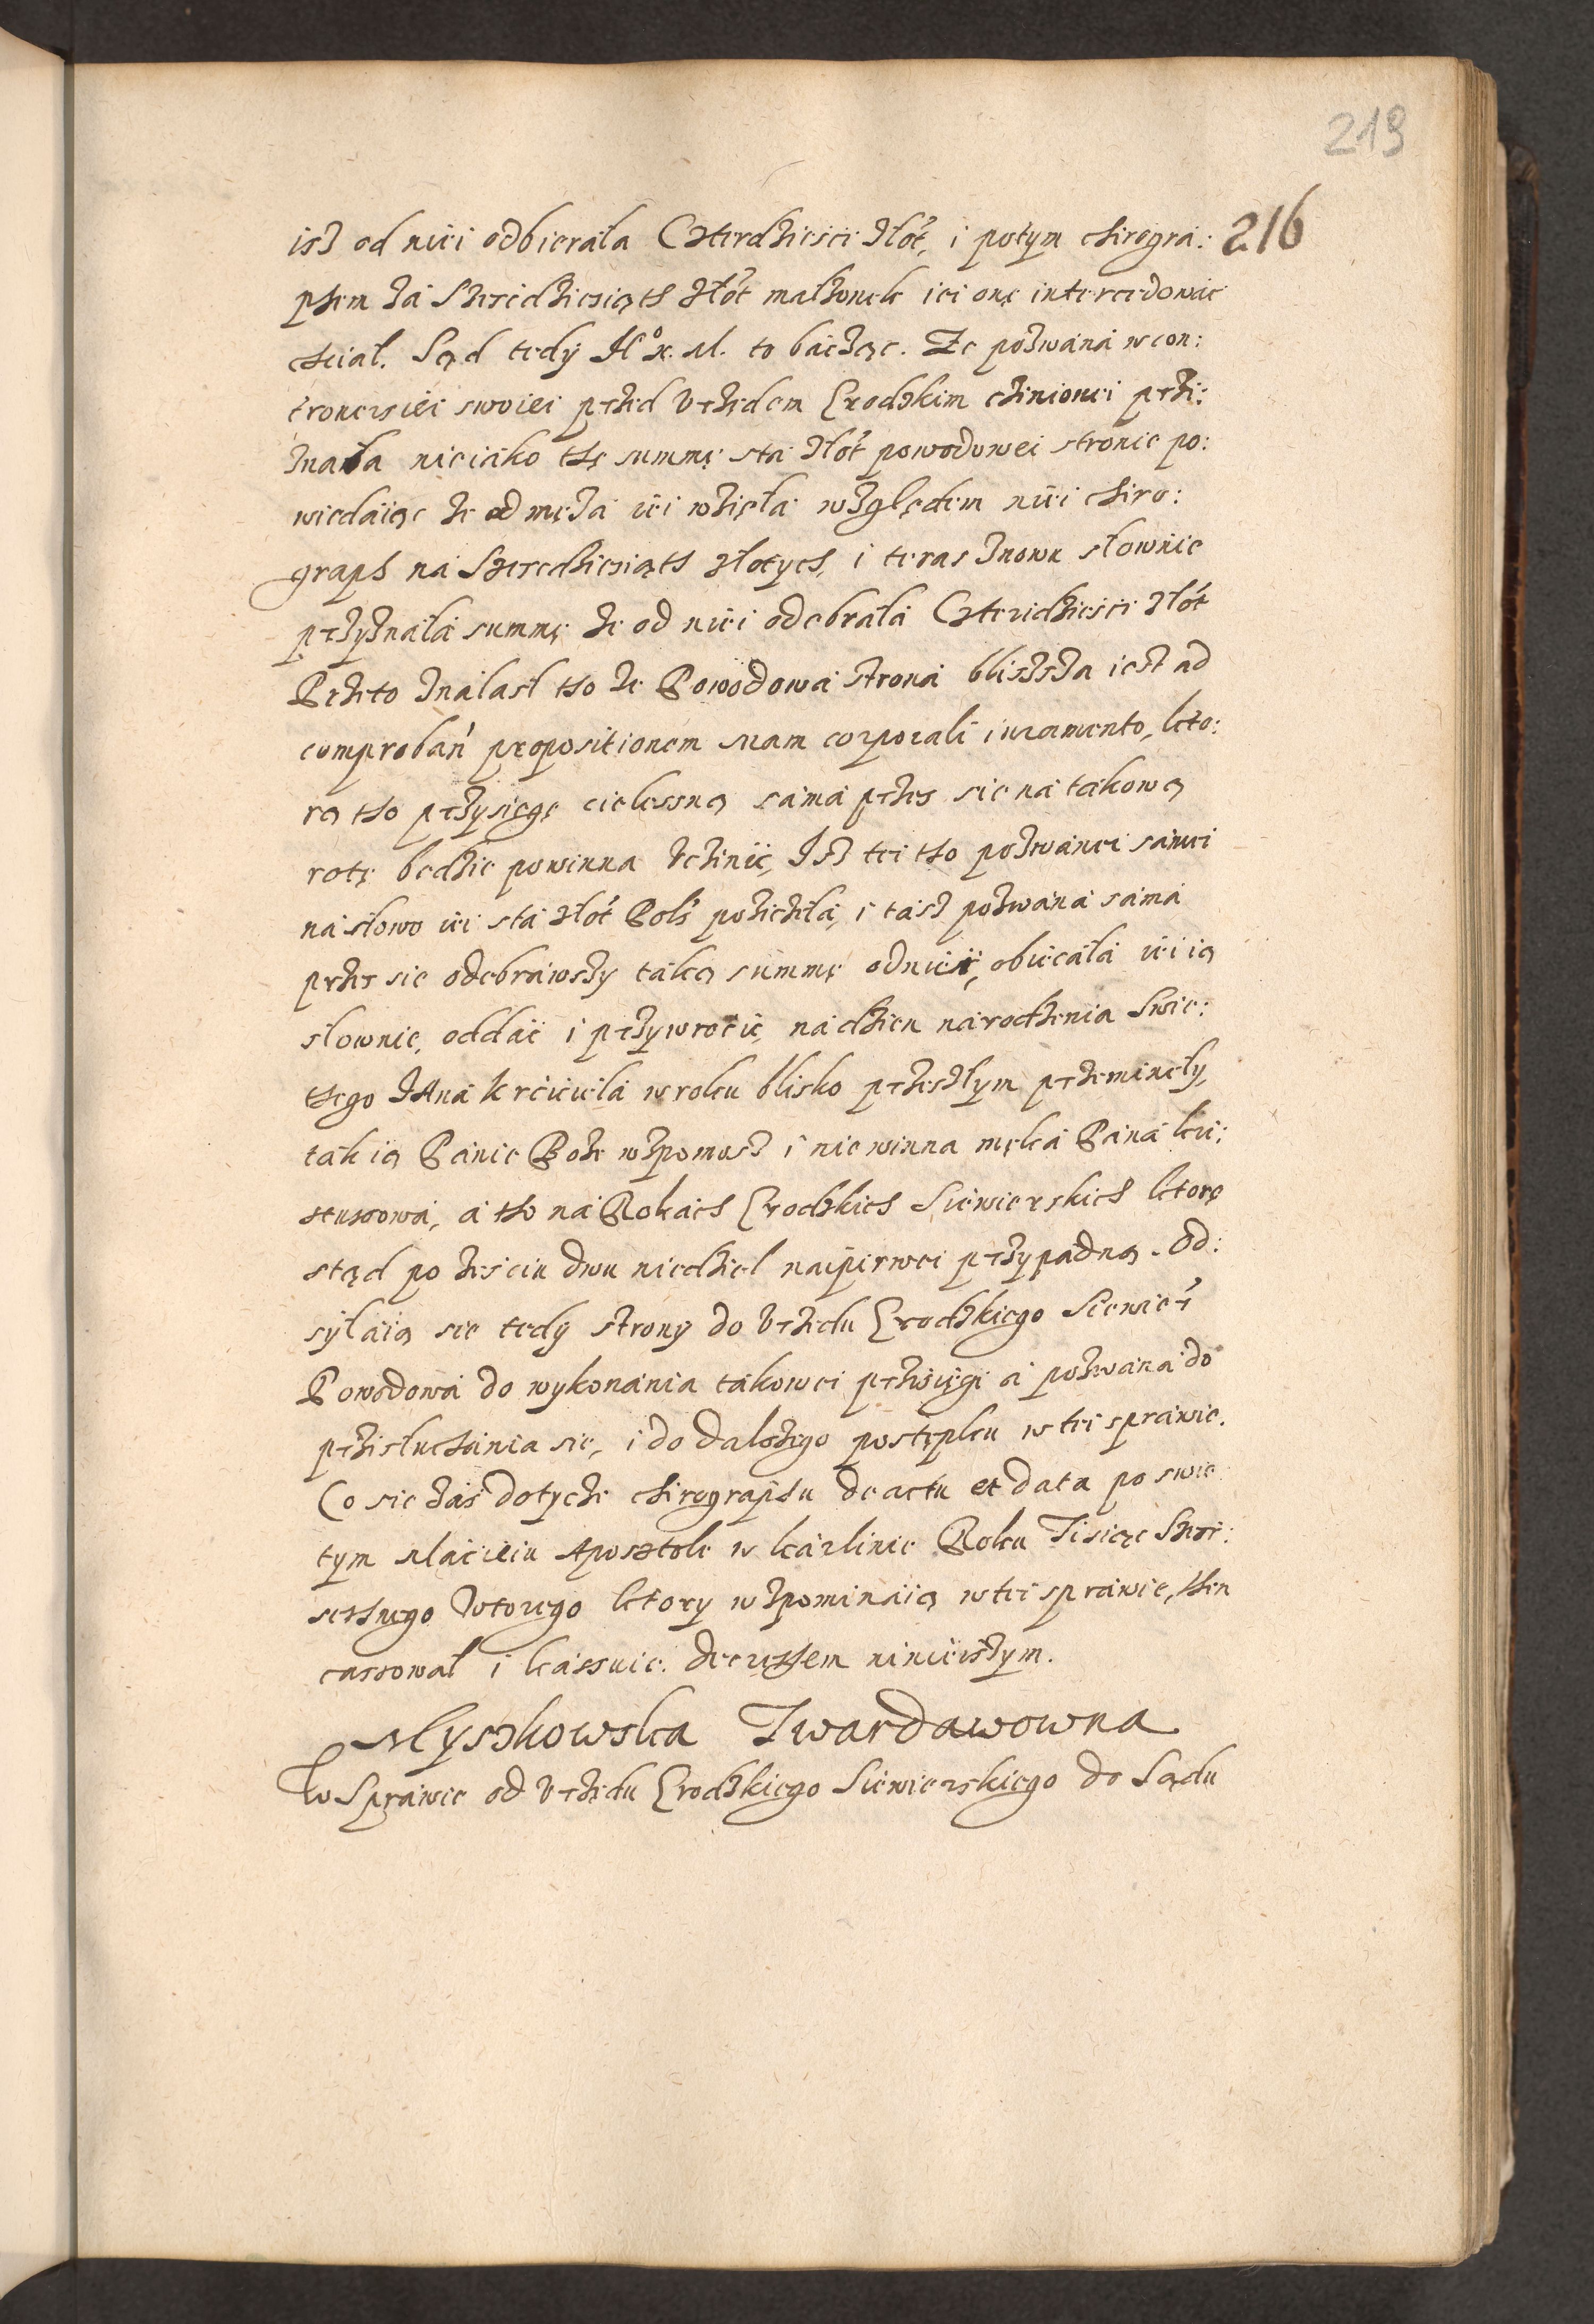 219
isz od niei odbierała Czterdziesci złot, i potym chirogra: 216
phem za Szescdziesiąth złot małzonek iei onę intercedowac
chciał. Sąd tedÿ Ilº x. M. to bacząc. Ze pozwana w con:
trowersiei swoiei przed Vrzędem Grodzkim czinionei przi:
znała nieiako thę summę sta złot powodowei stronie po:
wiedaiąc ze od męza iei wzięła względem niei chiro:
graph na Szescdziesiąth złotych, i teras znowu słownie
przyznała summę ze od niei odebrała Czterdziesci złot
Przeto znalasł tho ze Powodowa strona blissza iest ad
comproban propositionem suam corporali iuramento, kto:
rą tho przysięgę cielesną sama przes sie na takową
rotę bedzie powinna vczinic, Isz tei tho pozwanei samei
na słowo iei sta złot Pols pozicziła, i tasz pozwana sama
przes sie odebrawszy taką summę od niei, obiecała iei ią
słownie, oddac i przywrocic, na dzien narodzenia Swie:
thego Jana Krciciela w roku blisko przeszłym przeminęły,
tak ią Panie Boze wspomosz i niewinna męka Pana kri:
stusowa, a tho na Rokach Grodzkich Siewierskich ktore
stąd po ześciu dwu niedziel naipirwei przypadną. Od:
syłaią sie tedy strony do Vrzedu Grodzkiego Siewier
Powodowa do wykonania takowei przisięgi a pozwana do
przisłuchania sie, i do dalszego postępku w tei sprawie.
Co sie zas dotycze chirographu de actu et data po swie:
tym Macieiu Aposztole w karlinie Roku Tisiąc Szesc:
sethnego Wtorego ktory wspominaią w tei sprawie, then
cassował i kassuie. decrethem ninieiszym.
Myszkowska Twardawowna
W Sprawie od Vrzędu Grodzkiego Siewierskiego do Sądu